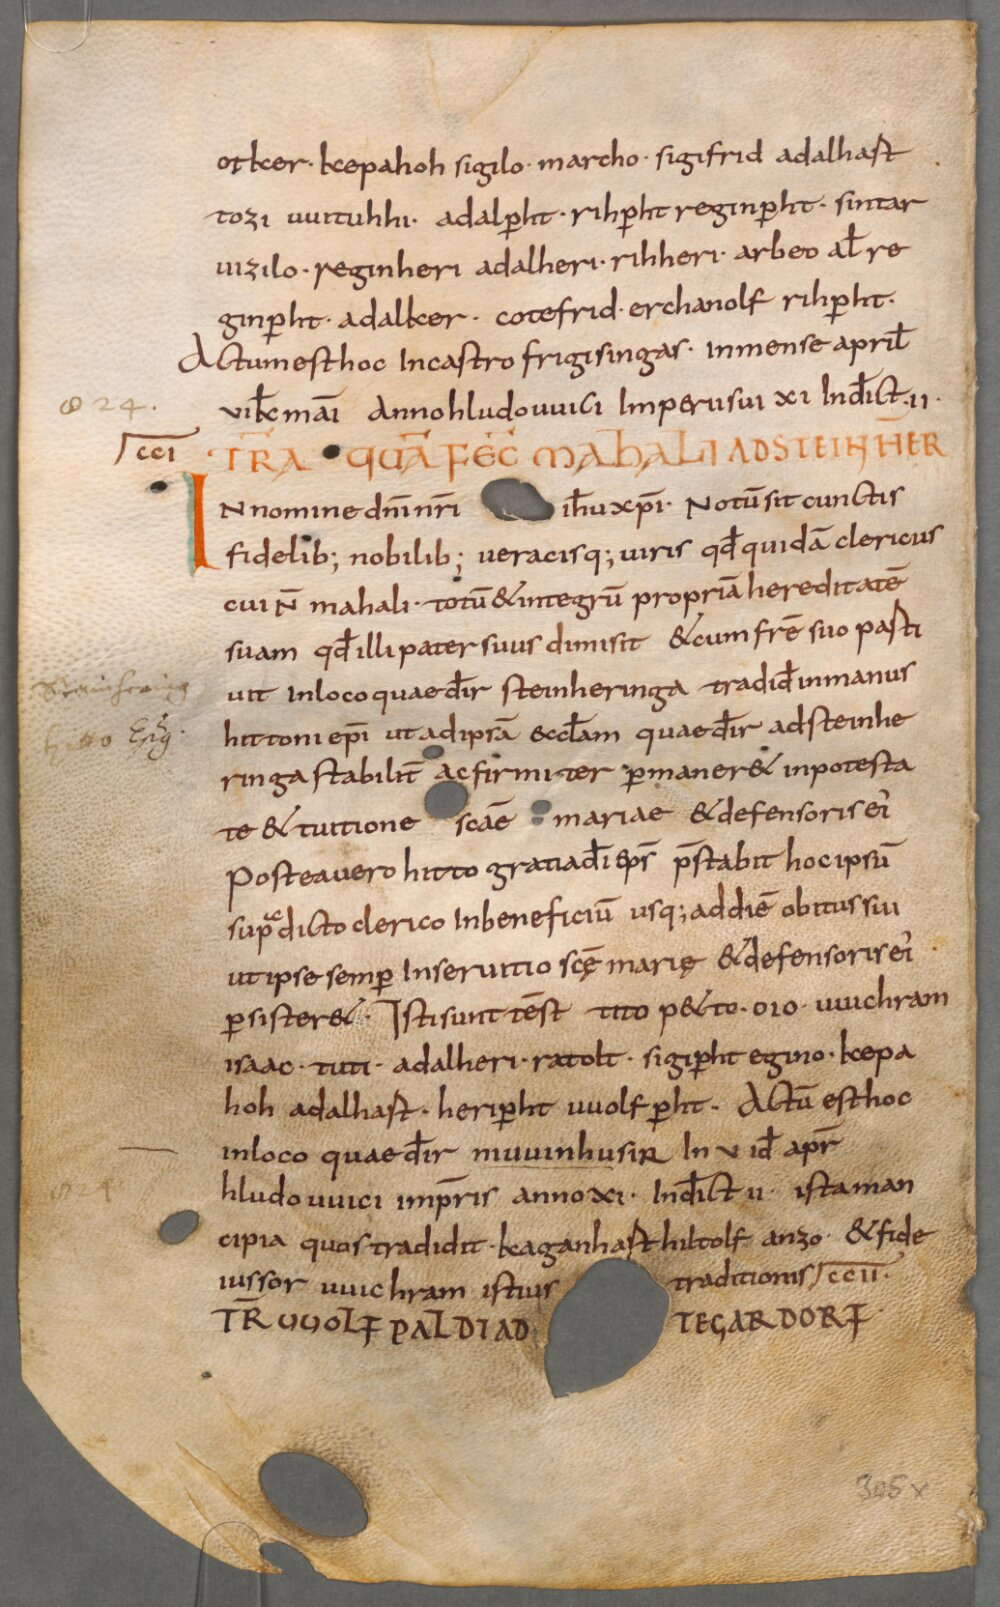 otker · kepahoh sigilo · marcho · sigifrid adalhast
tozi uuituhhi · adalp̄ht · rihp̄ht reginp̄ht · sintar
uizilo · reginheri adalheri · rihheri · arbeo al̄ re
ginp̄ht · adalker · cotefrid · erchanolf rihp̄ht ·
Actum est hoc In castro frigisingas · In mense april̄
vii k̄ mai Anno hludouuici Imperii sui xi Indict̄ · ii ·
824 ·
cci
TRA QUĀ FEC̄ MAHALI AD STEINHER
IN nomine dn̄i nr̄i ih̄u xp̄i · Notū sit cunctis
fidelib; nobilib; ueracisq; uiris qđ quidā clericus
cui N̄ mahali · totū & integrū propriā hereditatē
suam qđ illi pater suus dimisit & cum fr̄e suo parti
uit In loco quae dr̄ steinheringa tradiđ in manus
hittoni ep̄i ut ad ipsā eccl̄am quae dr̄ ad steinhe
hitto Ep̄s
ringa stabilit̄ ac firmiter p̄maner& in potesta
te & tuitione sc̄ae mariae & defensoris ei
Postea uero hitto gratia dī ep̄s p̄stabit hoc ipsū
supradicto clerico In beneficiū usq; ad diē obitus sui
ut ipse semp̄ In seruitio sc̄ę marię & defensoris ei
p̄sister& · Isti sunt test̄ tito p&to · oio · uuichram
isaac · tuti · adalheri · ratolt · sigip̄ht egino · kepa
hoh adalhast · herip̄ht uuolfp̄ht · Actū est hoc
in loco quae dr̄ muuinhusir In v iđ apr̄
hludouuici imp̄ris anno xi · Indict̄ ii · ista man
824
cipia quos tradidit · kaganhast hiltolf anzo · & fide
iussor uuichram istius traditionis ccii ·
TR̄ UUOLFPALDI AD TEGARDORF
305 v